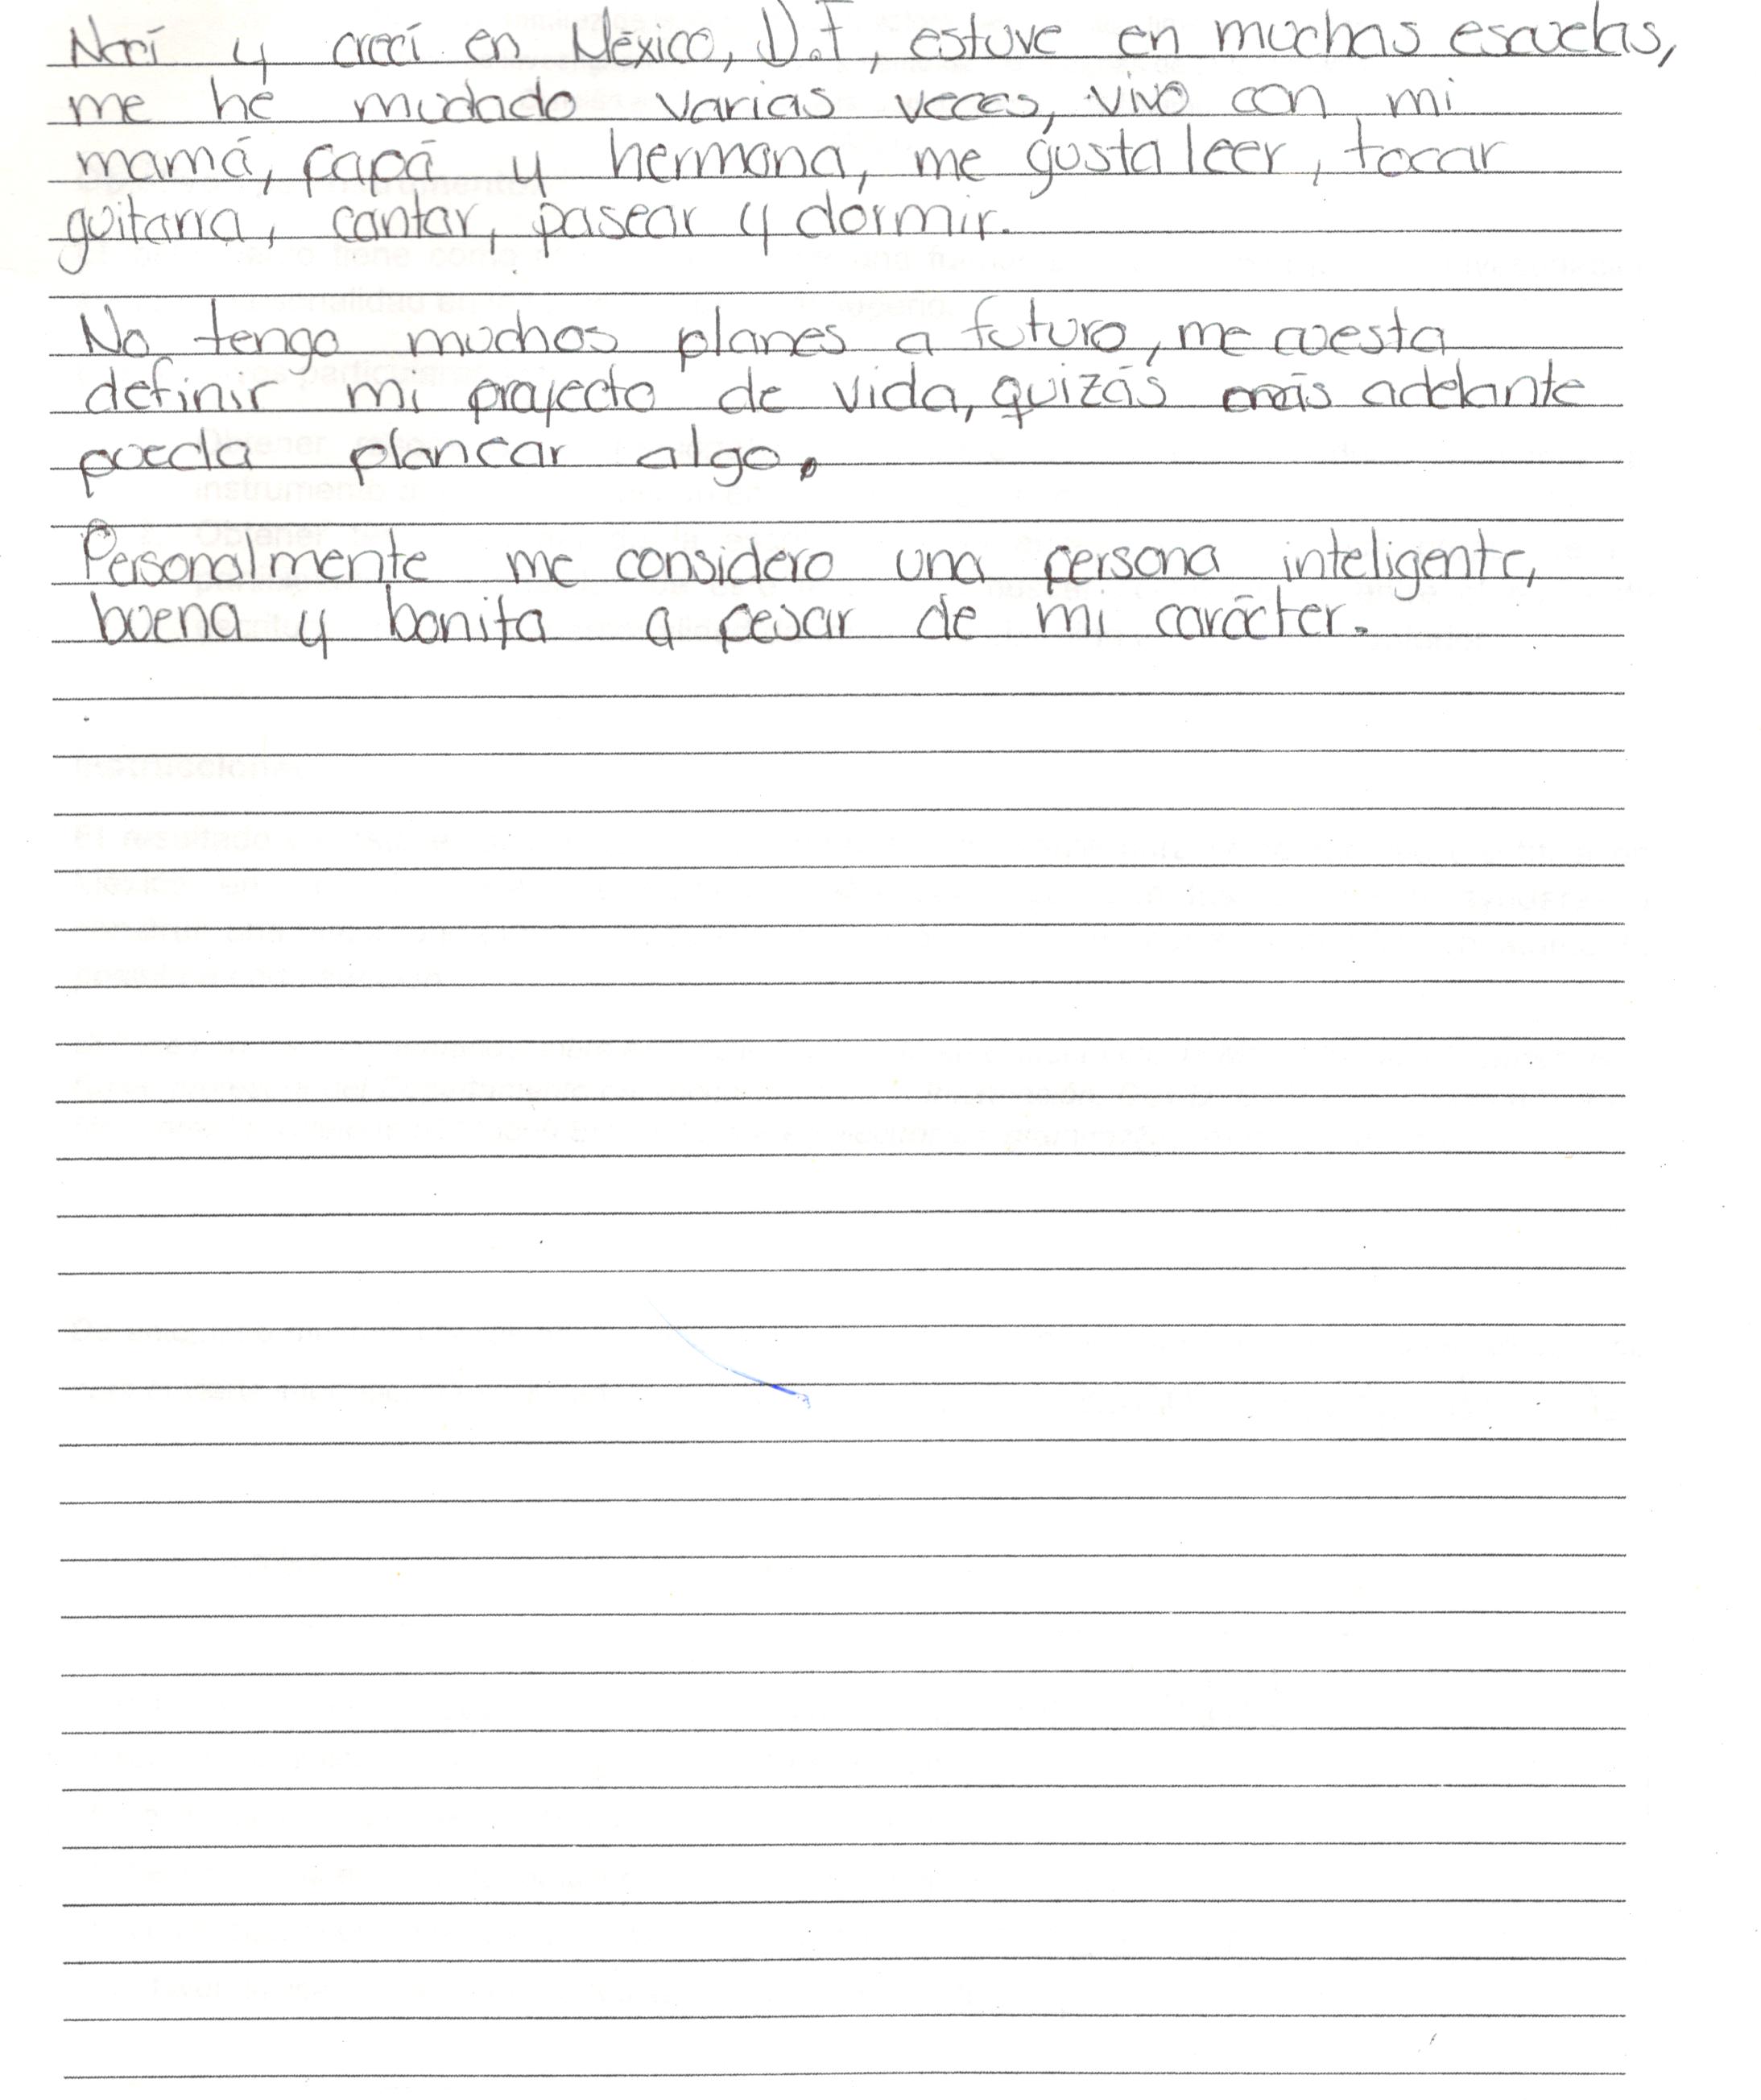 Nací y crecí en México, D.F, estuve en muchas escuelas,
me he mudado varias veces, vivo con mi
mamá, papá y hermana, me gusta leer, tocar
guitarra, cantar, pasear y dormir.
No tengo muchos planes a futuro, me cuesta
definir mi proyecto de vida, quizás más adelante
pueda planear algo.
Personalmente me considero una persona inteligente,
buena y bonita a pesar de mi carácter.